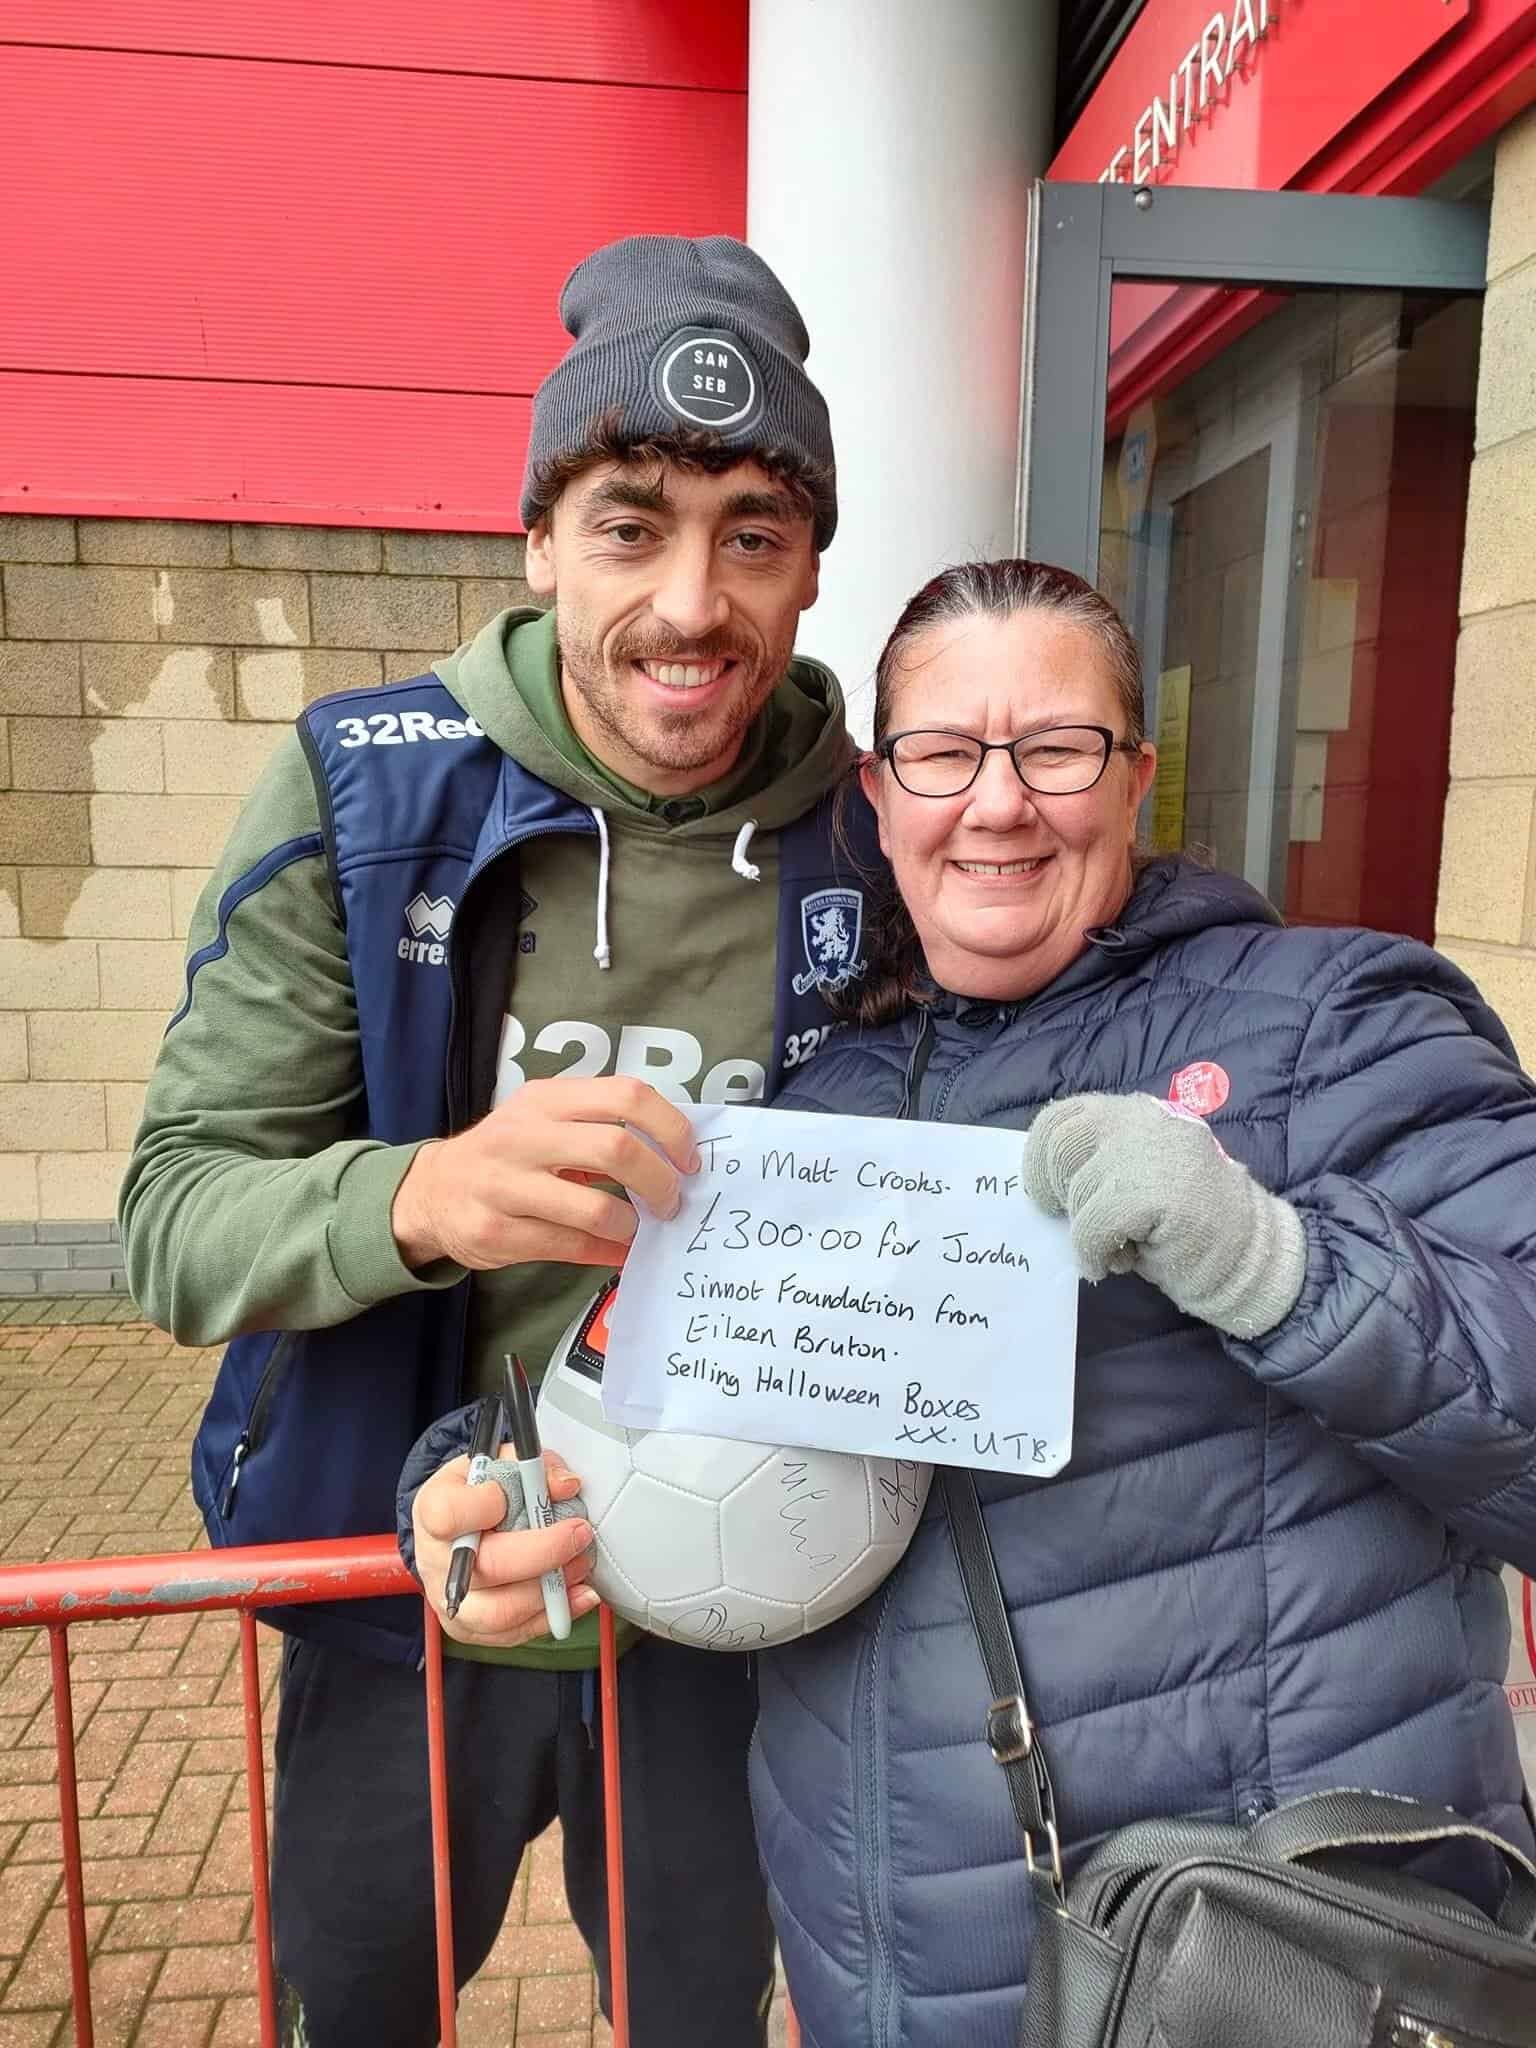 ENTRAN
SAN
SEB
32Red
errea
MIDDLESBROUGH
32Re
32
To Matt Crooks. MF
£300.00 for Jordan
Sinnot Foundation from
Eileen Bruton.
Selling Halloween Boxes
xx. UTB.